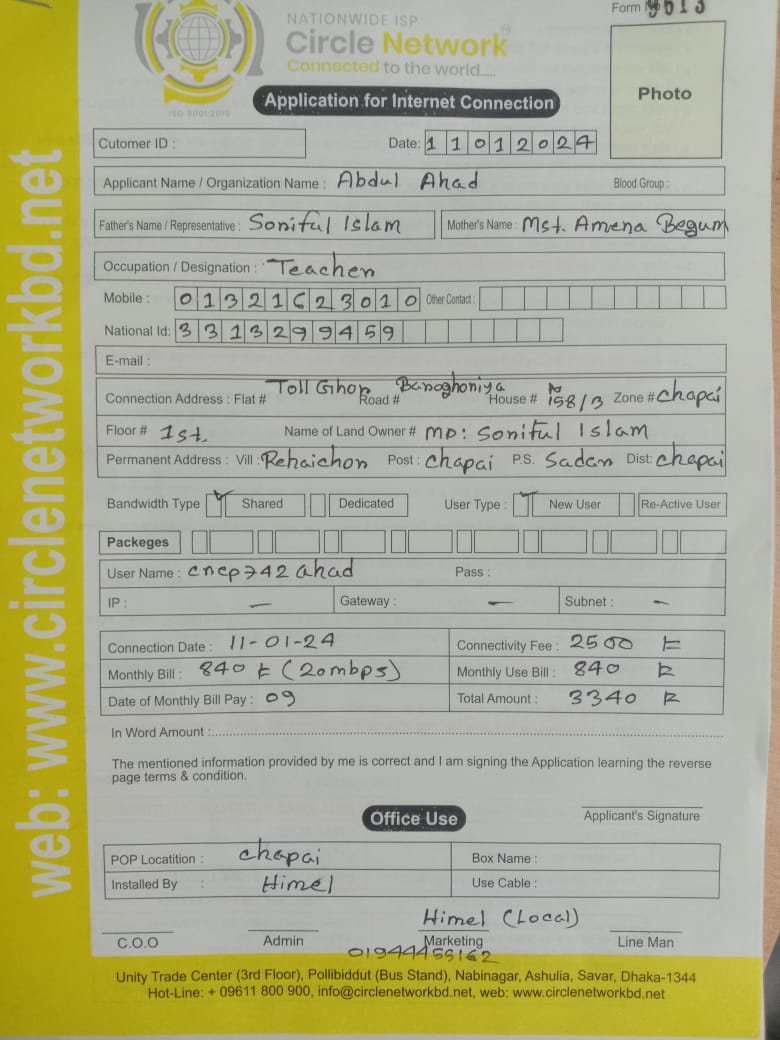 NATIONWIDE ISP
Circle Network
Connected to the world.....
ISO 9001:2015
Form
Photo
Application for Internet Connection
Cutomer ID :
Date: 11012024
Applicant Name / Organization Name : Abdul Ahad Blood Group :
Father's Name / Representative : Soniful Islam Mother's Name : Mst. Amena Begum
Occupation / Designation : Teachen
Mobile : 01321623010 Other Contact :
National Id: 3313299459
E-mail :
Connection Address : Flat # Toll Ghor Road # Banoghoniya House # 158/B Zone # chapai
Floor # 1st. Name of Land Owner # MD: Soniful Islam
Permanent Address : Vill : Rehaichon Post : chapai P.S. Sadan Dist: chapai
Bandwidth Type Shared Dedicated User Type : New User Re-Active User
Packeges
User Name : cncp742ahad Pass :
IP : — Gateway : — Subnet : –
Connection Date : 11-01-24 Connectivity Fee : 2500
Monthly Bill : 840 (20mbps) Monthly Use Bill : 840
Date of Monthly Bill Pay : 09 Total Amount : 3340
In Word Amount :
The mentioned information provided by me is correct and I am signing the Application learning the reverse
page terms & condition.
Applicant's Signature
Office Use
POP Locatition : chapai Box Name :
Installed By : Himel Use Cable :
Himel (Local)
C.O.O Admin Marketing Line Man
Unity Trade Center (3rd Floor), Pollibiddut (Bus Stand), Nabinagar, Ashulia, Savar, Dhaka-1344
Hot-Line: + 09611 800 900, info@circlenetworkbd.net, web: www.circlenetworkbd.net
web: www.circlenetworkbd.net